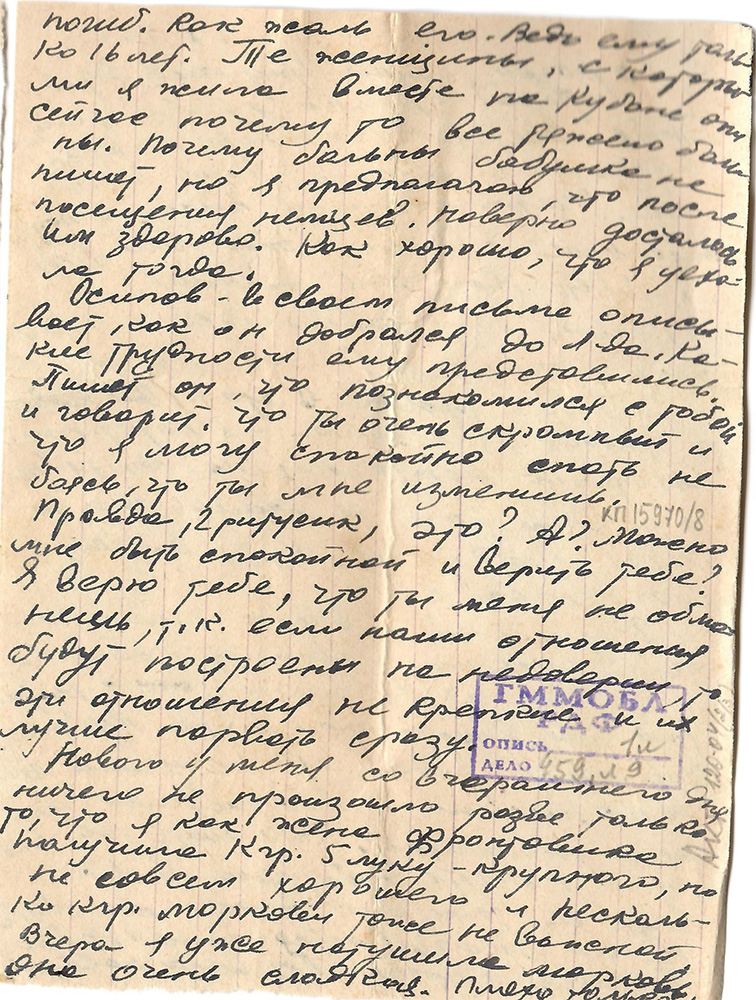 погиб. Как жаль его. Ведь ему толь
ко 16 лет. Те женщины, с которы
ми я жила вместе на Кубане они
сейчас почему то все
ны. Почему больны бабушка не
пишет, но я предпалагаю, что после
посещения немцев. Наверно досталось
им здорово. Как хорошо, что я уеха-
ла тогда.
Осипов - в своем письме описы-
вает, как он добрался до Л-да. Ка-
кие трудности ему представились.
Пишет он, что познакомился с тобой
и говорит, что ты очень скромный и
что я могу спокойно спать не
боясь, что ты мне изменишь.
КП 15970/8
Правда, это? А? Можно
мне быть спокойной и верить тебе?
Я верю тебе, что ты меня не обма
нешь, т.к. если наши отношения
будут построены на недоверии то
эти отношения не крепкие и их
лучше порвать сразу.
ГММОБЛ
РДФ
ОПИСЬ 1л
ДЕЛО 459, л 9
Нового у меня со вчерашнего дня
ничего не произошло разве только
то, что я как жена фронтовика
получила кгр. 5 луку - крупного, но
не совсем хорошего и несколь-
ко кгр. моркови тоже не важной
Вчера я уже натушила морковь
она очень сладкая. Плохо только